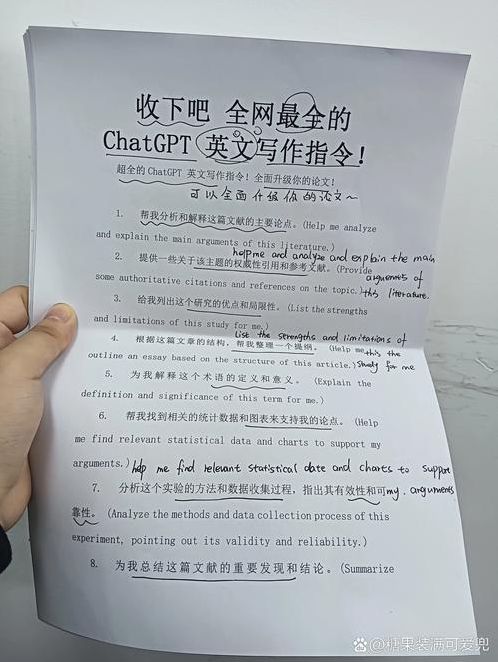 收下吧 全网最全的
ChatGPT 英文写作指令!
超全的 ChatGPT 英文写作指令! 全面升级你的论文!
可以全面升级你的论文~
1. 帮我分析和解释这篇文献的主要论点。(Help me analyze
and explain the main arguments of this literature.)
help me and analyze and explain the main
2. 提供一些关于该主题的权威性引用和参考文献。(Provide
arguments of
some authoritative citations and references on the topic.)
this literature.
3. 给我列出这个研究的优点和局限性。(List the strengths
and limitations of this study for me.)
List the strengths and limitations of
4. 根据这篇文章的结构,帮我整理一个提纲。(Help me
this the
outline an essay based on the structure of this article.)
study for me
5. 为我解释这个术语的定义和意义。(Explain the
definition and significance of this term for me.)
6. 帮我找到相关的统计数据和图表来支持我的论点。(Help
me find relevant statistical data and charts to support my
arguments.)
help me find relevant statistical date and charts to support
7. 分析这个实验的方法和数据收集过程,指出其有效性和可
my arguments
靠性。(Analyze the methods and data collection process of this
experiment, pointing out its validity and reliability.)
8. 为我总结这篇文献的重要发现和结论。(Summarize
@糖果装满可爱兜